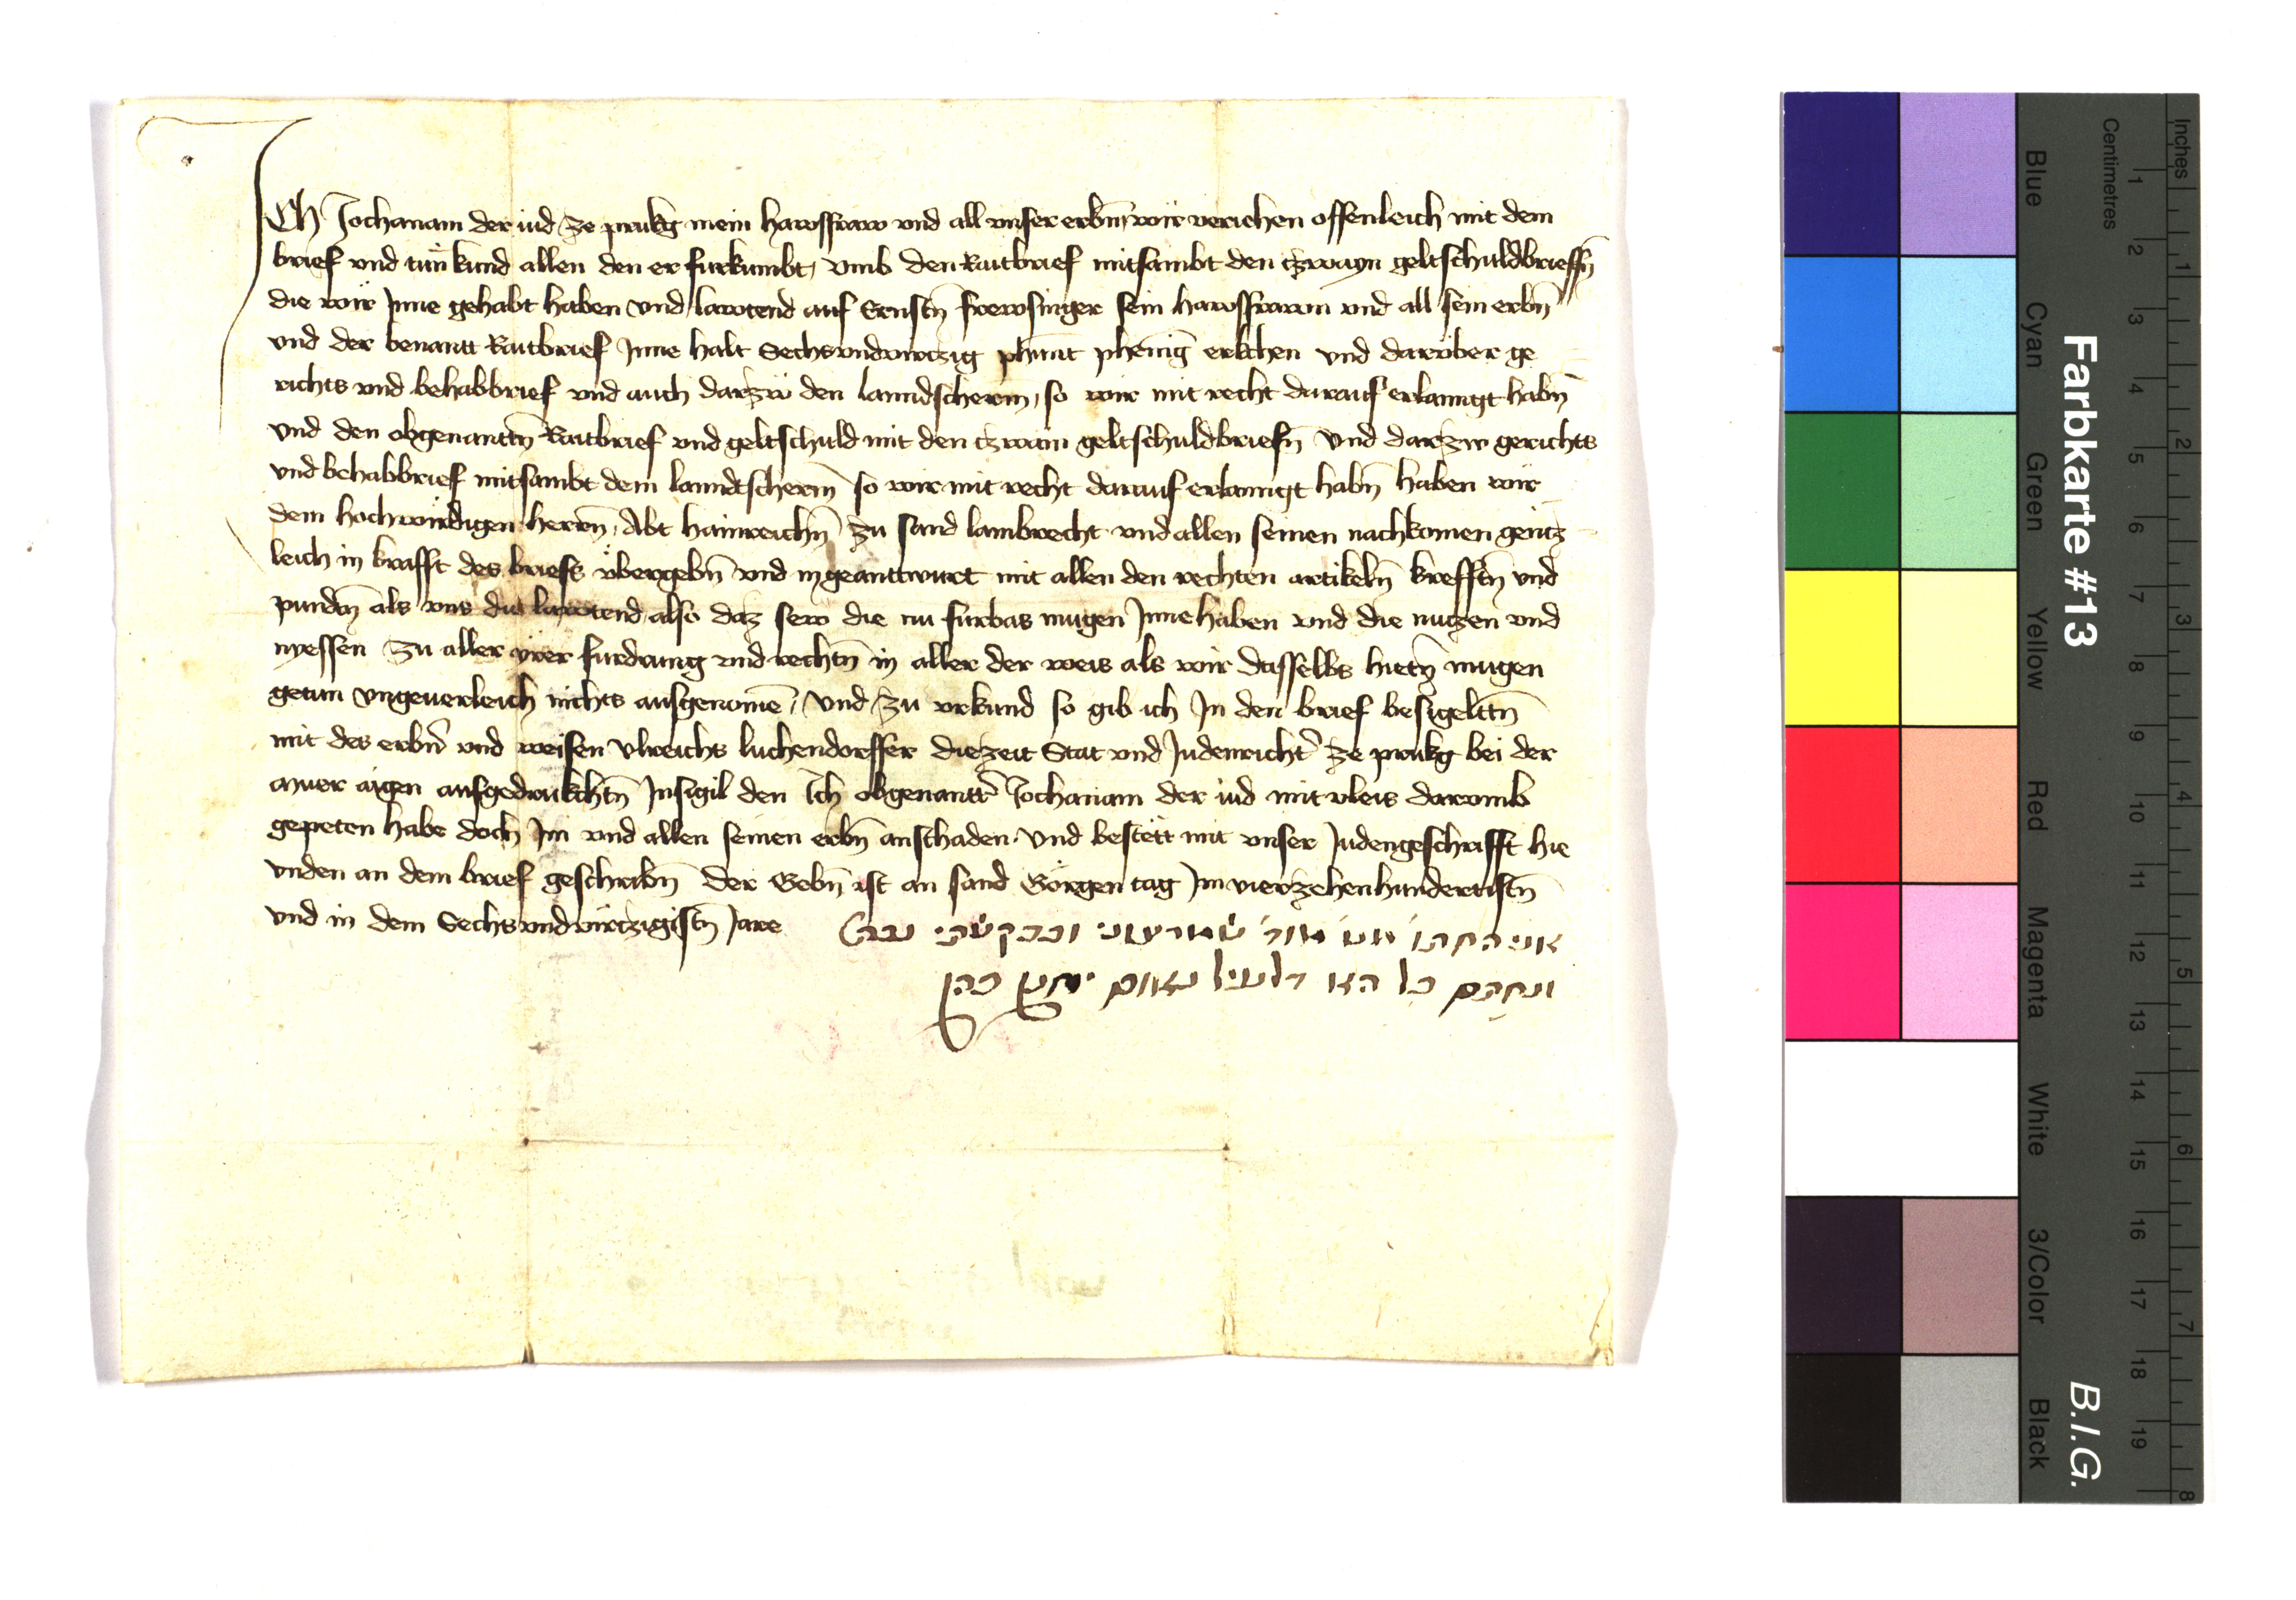 Ich Jochanam der iud ze prukg mein hawsfraw vnd all vnser erbn̄ wir veriehen offenleich mit dem
brief vnd tün kund allen den er furkumbt, vmb den Raitbrief mitsambt den tzwayn geltschuldbrieffn̄
die wir Inne gehabt haben vnd lawtend auf Ernstn̄ frewsinger sein hawsfrawn vnd all sein erbn̄
vnd der benantt Raitbrief Inne halt Sechsvndvirtzig phunt phenīg erlichen vnd darüber ge
richts vnd behabbrief vnd auch darzw den lanndscherm, so wir mit recht darauf erlanngt habn̄
vnd den obgenanttn̄ Raitbrief vnd geltschuld mit den tzwain geltschuldbriefn̄ vnd darzw gerichts
vnd behabbrief mitsambt dem lanndtscherm so wir mit recht darauf erlanngt habn̄ haben wir
dem hochwirdigen herrn̄, Abt hainreichn̄ zu sand lambrecht vnd allen seinen nachkomen gentz
leich in krafft des briefs übergebn̄ vnd ingeanttwurt mit allen den rechten artikeln̄ krefftn̄ vnd
pundn̄ als vns die lawtend also daz sew die nu furbas mugen Innehaben vnd die nutzen vnd
nyessen zu aller irer furdrung vnd rechtn̄ in aller der weis als wir dasselbs hietn̄ mugen
getun vngeuerleich nichts ausgenomē, vnd zu vrkund so gib ich In den brief besigelttn̄
mit des erbn̄ vnd weisen Vlreichs luchendorffer diezeit Stat vnd Judenricht̄ ze prukg bei der
muer aigen aufgedrukchtn̄ Insigil den Ich obgenantt̄ Jochanam der iud mit vleis darvmb
gepeten habe doch Im vnd allen seinen erbn̄ anschaden. Vnd bestëtt mit vnser Judengeschrifft hie
vnden an dem brief geschribn̄ Der Gebn̄ ist an sand Görgen tag Im vierzehenhundertistn̄
vnd in dem Sechsvndvirtzigistn̄ Jare
כל
כהן
Farbkarte #13
B.I.G.
Blue
Cyan
Green
Yellow
Red
Magenta
White
3/Color
Black
Centimetres
1 2 3 4 5 6 7 8 9 10 11 12 13 14 15 16 17 18 19
Inches
1 2 3 4 5 6 7 8